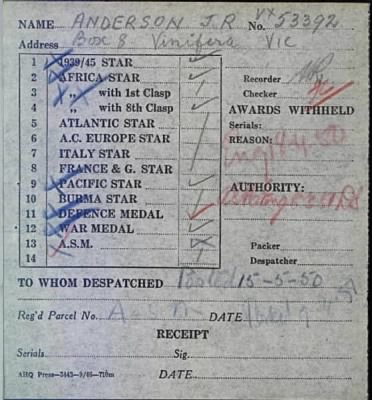 NAME ANDERSON J.R No. VX53392
Address Box 8 Vinifera Vic
1 1939/45 STAR
2 AFRICA STAR
3 „ with 1st Clasp
4 „ with 8th Clasp
5 ATLANTIC STAR
6 A.C. EUROPE STAR
7 ITALY STAR
8 FRANCE & G. STAR
9 PACIFIC STAR
10 BURMA STAR
11 DEFENCE MEDAL
12 WAR MEDAL
13 A.S.M.
14
Recorder
Checker
AWARDS WITHHELD
Serials:
REASON:
AUTHORITY:
Packer
Despatcher
TO WHOM DESPATCHED Posted 15-5-50
Reg'd Parcel No. A-S-M DATE
RECEIPT
Serials Sig.
AHQ Press—3443—9/65—710m DATE